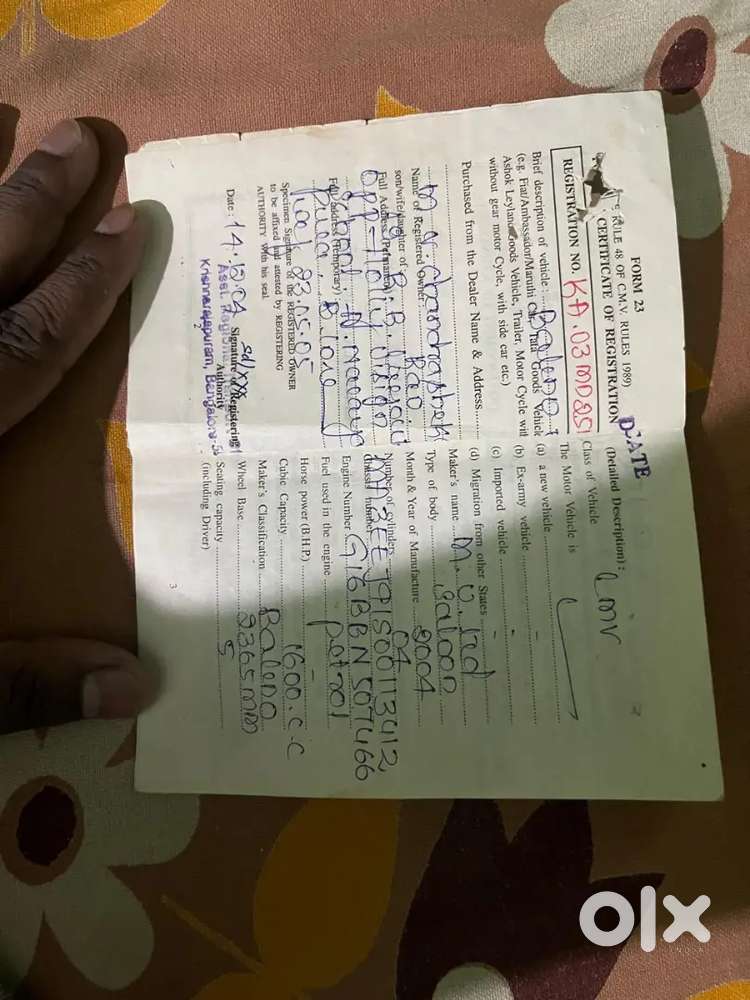 FORM 23
RULE 48 OF C.M.V. RULES 1989)
CERTIFICATE OF REGISTRATION
REGISTRATION NO. KA.03 MD
Brief description of vehicle : Baleno
(e.g. Fiat/Ambassador/Maruthi Car, Tata Goods Vehicle
Ashok Leyland Goods Vehicle, Trailer, Motor Cycle with
without gear motor Cycle, with side car etc.)
Purchased from the Dealer Name & Address
M.V. Chandrashek
Name of Registered Owner Rao
son/wife/daughter of
Full Address (Permanent)
Opp-Holy
Full address (Temporary)
Pura B'lore
Specimen Signature of the REGISTERED OWNER
to be affixed and attested by REGISTERING
AUTHORITY with his seal.
23.05.05
Date : 14.12.04 Signature of Registering
Authority
Asst. Regional
Krishnarajapuram, Bangalore-
2
DATE
(Detailed Description) :
Class of Vehicle LMV
The Motor Vehicle is
(a) a new vehicle
(b) Ex-army vehicle -
(c) Imported vehicle -
(d) Migration from other States -
Maker's name M.U. Ltd
Type of body Saloon
Month & Year of Manufacture 2004
Number of cylinders 04
chassis number MA3EEJ91S00113412
Engine Number G16BBN507466
Fuel used in the engine petrol
Horse power (B.H.P.) -
Cubic Capacity 1600.C.C
Maker's Classification Baleno
Wheel Base 2365MM
Seating capacity 5
(including Driver)
3
olx